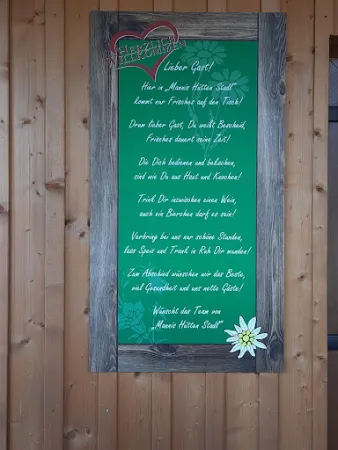 HERZLICH
WILLKOMMEN
Lieber Gast!
Hier in „Mannis Hütten Stadl"
kommt nur Frisches auf den Tisch!
Drum lieber Gast, Du weißt Bescheid,
Frisches dauert seine Zeit!
Die Dich bedienen und bekochen,
sind wie Du aus Haut und Knochen!
Trink Dir inzwischen einen Wein,
auch ein Bierchen darf es sein!
Verbring bei uns nur schöne Stunden,
lass Speis und Trank in Ruh Dir munden!
Zum Abschied wünschen wir das Beste,
viel Gesundheit und uns nette Gäste!
Wünscht das Team von
„Mannis Hütten Stadl"